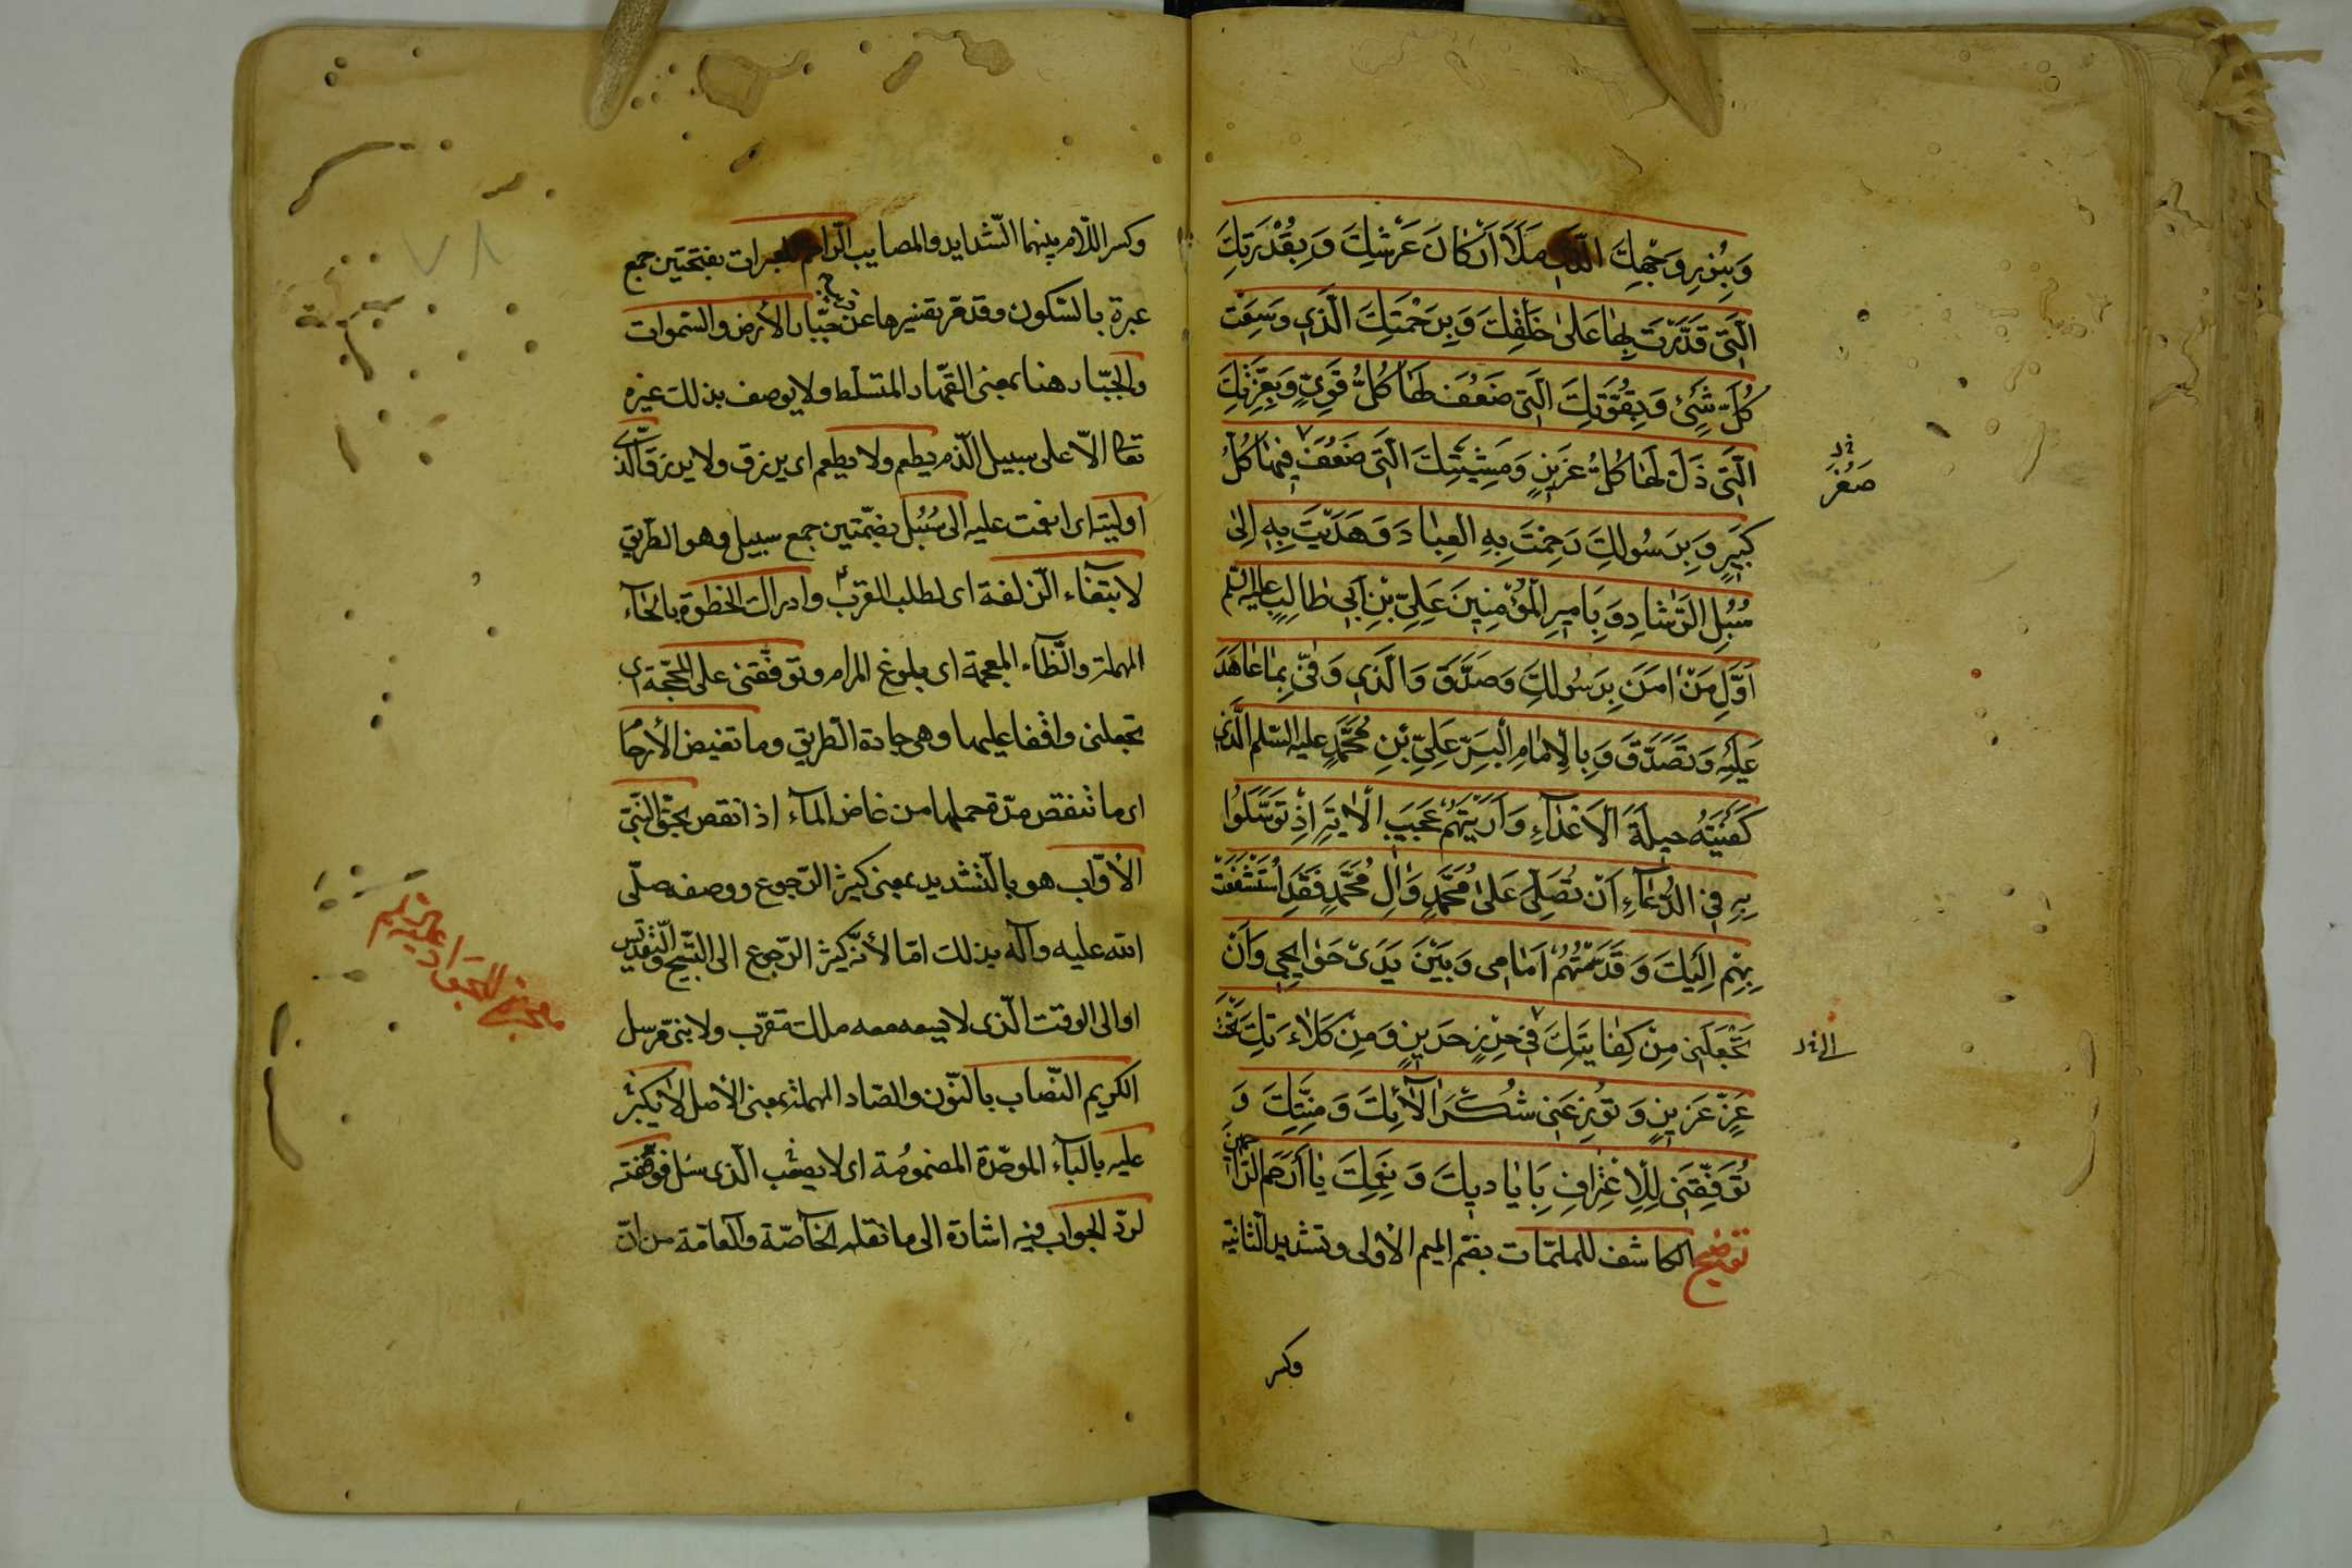 وَبِنُورِ وَجْهِكَ الَّذِي مَلَاَ اَرْكَانَ عَرْشِكَ وَ بِقُدْرَتِكَ
الَّتِي قَدَّرْتَ بِهَا عَلىٰ خَلْقِكَ وَ بِرَحْمَتِكَ الَّذِي وَسِعَتْ
كُلَّ شَيْءٍ وَ بِقُوَّتِكَ الَّتِي ضَعُفَ لَهَا كُلُّ قَوِيٍّ وَ بِعِزَّتِكَ
الَّتِي ذَلَّ لَهَا كُلُّ عَزِيزٍ وَ مَشِيَّتِكَ الَّتِي ضَعُفَ فِيهَا كُلُّ
صَغُرَ
كَبِيرٍ وَ بِرَسُولِكَ رَحِمْتَ بِهِ العِبَادَ وَ هَدَيْتَ بِهِ اِلىٰ
سُبُلِ الرَّشَادِ وَ بِاَمِيرِ الْمُؤْمِنِينَ عَلِيِّ بْنِ اَبِي طَالِبٍ عليه السّلم
اَوَّلِ مَنْ اٰمَنَ بِرَسُولِكَ وَ صَدَّقَ وَ الَّذِي وَفىّٰ بِمَا عَاهَدَ
عَلَيْهِ وَ تَصَدَّقَ وَ بِالْاِمَامِ البَرِّ عَلِيِّ بْنِ مُحَمَّدٍ عليه السّلم الَّذِي
كَفَيْتَهُ حِيلَةَ الْاَعْدَآءِ وَ اَرَيْتَهُمْ عَجَبَ الْاٰيَةِ اِذْ تَوَسَّلُوا
بِهِ فِي الدُّعَآءِ اَنْ تُصَلِّيَ عَلىٰ مُحَمَّدٍ وَ اٰلِ مُحَمَّدٍ فَقَدِ اسْتَشْفَعْتُ
بِهِمْ اِلَيْكَ وَ قَدَّمْتُهُمْ اَمَامِي وَ بَيْنَ يَدَيْ حَوَايِجِي وَ اَنْ
تَجْعَلَنِي مِنْ كِفَايَتِكَ فِي حِرْزٍ حَرِيزٍ وَ مِنْ كَلاءَتِكَ تَحْتَ
عِزٍّ عَزِيزٍ وَ تُوزِعَنِي شُكْرَ اٰلَآئِكَ وَ مِنَنِكَ وَ
تُوَفِّقَنِي لِلْاِعْتِرَافِ بِاَيَادِيكَ وَ نِعَمِكَ يَا اَرْحَمَ الرَّاحمين
توضيح الكاشف للملمّات بضمّ الميم الأولى وتشديد الثانية
وكسر
وكسر اللّام بينهما الشّدايد والمصايب الرّاحم للعبرات بفتحتين جمع
عبرة بالسّكون وقد مرّ تفسيرها عن جبّار الأرض والسّموات
والجبّار هنا بمعنى القهّار المتسلّط ولا يوصف بذلك غيره
تعالى الاّ على سبيل الذّم يطعم ولا يطعم اى يرزق ولا يرزق الّذى
اوليته اى انعمت عليه الى سُبُل بضمّتين جمع سبيل وهو الطّريق
لابتغاء الزّلفة اى لطلب القرب وادراك الحظوة بالحآء
المهملة والظّآء المعجمة اى بلوغ المرام وتوقّفنى على المحجّة اى
تجعلنى واقفا عليها وهى جادة الطّريق وما تغيض الأرحام
اى ما تنقص مدّة حملها من غاض المآء اذا نقص بحقّ النّبيّ
الأوّاب هو بالتّشديد بمعنى كثير الرّجوع ووصفه صلّى
الله عليه وآله بذلك امّا لأنّه كثير الرّجوع الى التّسبيح والتّقديس
او الى الوقت الّذى لا يسعه معه ملك مقرّب ولا نبىّ مرسل
الكريم النّصاب بالنّون والصّاد المهملة بمعنى الأصل لا يكبر
عليه بالبآء الموحّدة المضمومة اى لا يصعب الّذى سئل فوفّقته
لردّ الجواب فيه اشارة الى ما نقله الخآصّة والعآمّة من انّ